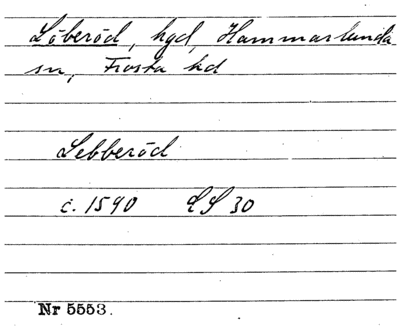 Löberöd, hgd, Hammarlunda
sn, Frosta hd
Lebberöd
c. 1590 LS 30
Nr 5553.